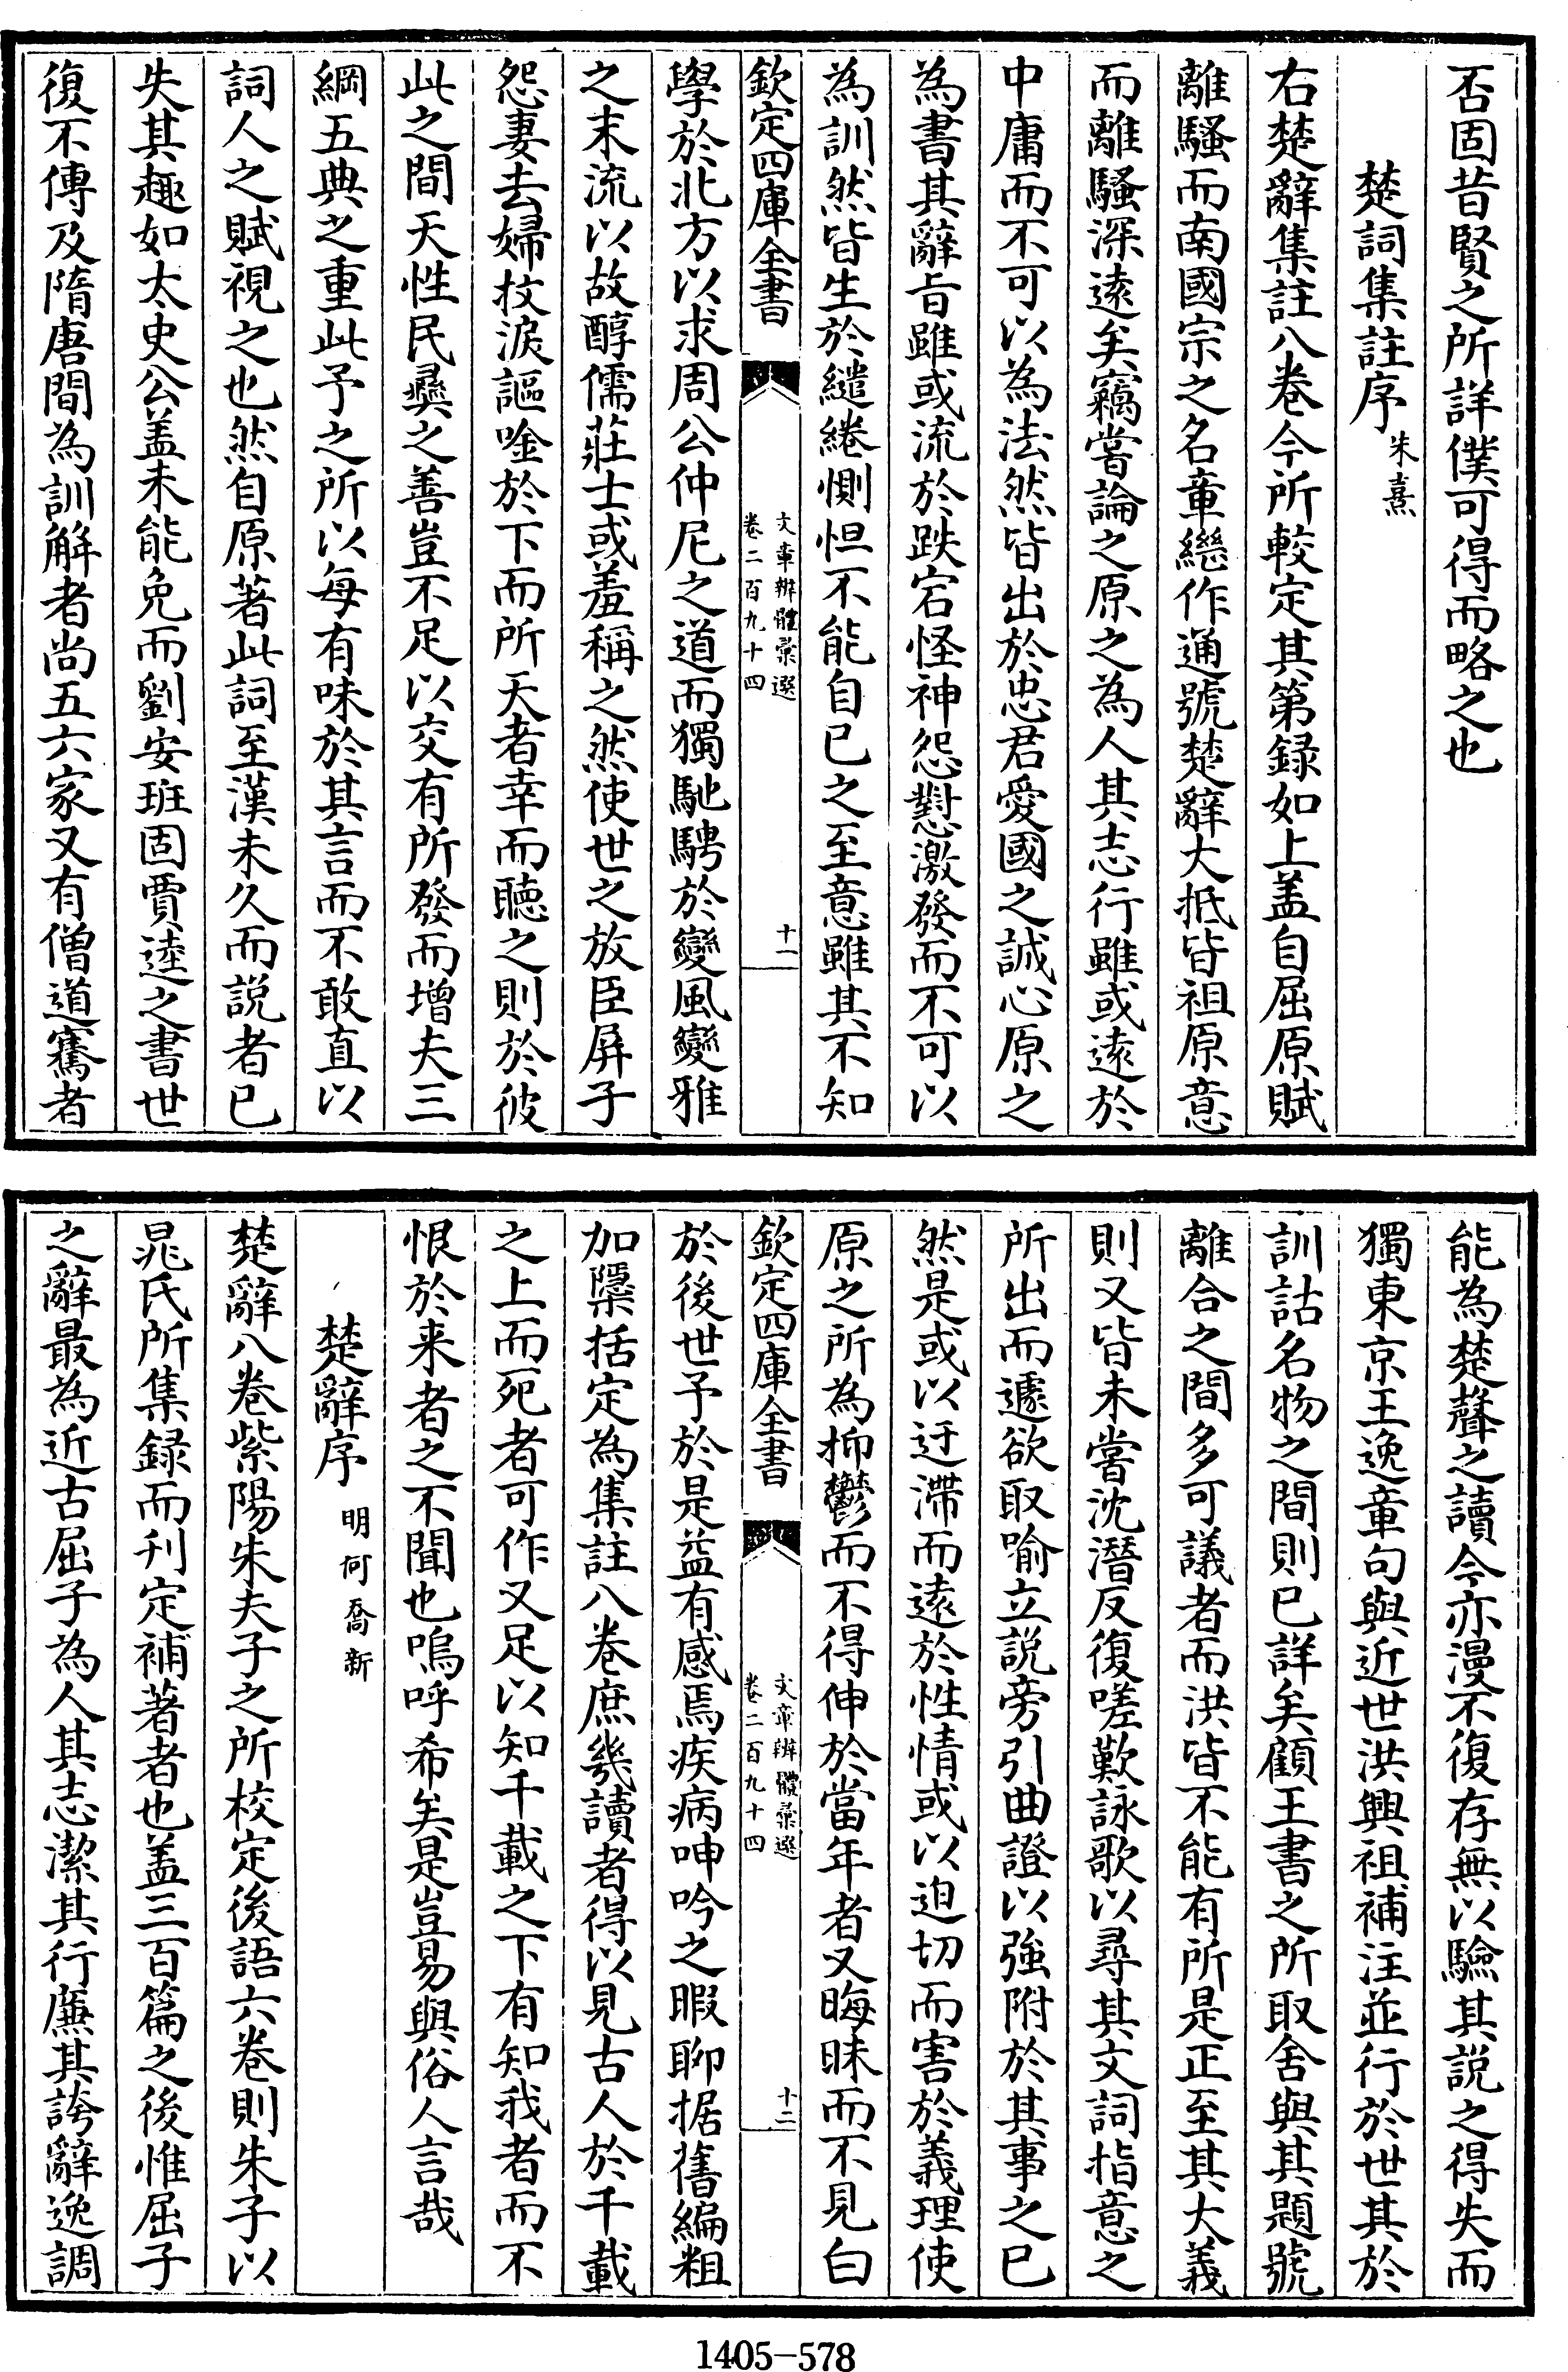 否固昔賢之所詳僕可得而略之也
楚詞集註序朱熹
右楚辭集註八卷今所較定其第録如上盖自屈原賦
離騷而南國宗之名章繼作通號楚辭大抵皆祖原意
而離騷深逺矣竊嘗論之原之為人其志行雖或逺於
中庸而不可以為法然皆出於忠君愛國之誠心原之
為書其辭旨雖或流於跌宕怪神怨懟激發而不可以
為訓然皆生於繾綣惻怛不能自已之至意雖其不知
欽定四庫全書
文章辨體彚選
卷二百九十四
十一
學於北方以求周公仲尼之道而獨馳騁於變風變雅
之末流以故醇儒莊士或羞稱之然使世之放臣屏子
怨妻去婦抆淚謳唫於下而所天者幸而聽之則於彼
此之間天性民彛之善豈不足以交有所發而增夫三
綱五典之重此予之所以每有味於其言而不敢直以
詞人之賦視之也然自原著此詞至漢未久而説者已
失其趣如太史公盖未能免而劉安班固賈逵之書世
復不傳及隋唐間為訓解者尚五六家又有僧道騫者
能為楚聲之讀今亦漫不復存無以驗其説之得失而
獨東京王逸章句與近世洪興祖補注並行於世其於
訓詁名物之間則已詳矣顧王書之所取舍與其題號
離合之間多可議者而洪皆不能有所是正至其大義
則又皆未嘗沈潛反復嗟歎詠歌以尋其文詞指意之
所出而遽欲取喻立説旁引曲證以強附於其事之已
然是或以迂滯而逺於性情或以迫切而害於義理使
原之所為抑鬱而不得伸於當年者又晦昧而不見白
欽定四庫全書
文章辨體彚選
卷二百九十四
十二
於後世予於是益有感焉疾病呻吟之暇聊据舊編粗
加檃括定為集註八卷庶幾讀者得以見古人於千載
之上而死者可作又足以知千載之下有知我者而不
恨於来者之不聞也嗚呼希矣是豈易與俗人言哉
楚辭序明何喬新
楚辭八卷紫陽朱夫子之所校定後語六卷則朱子以
晁氏所集録而刋定補著者也盖三百篇之後惟屈子
之辭最為近古屈子為人其志潔其行廉其誇辭逸調
1405-578